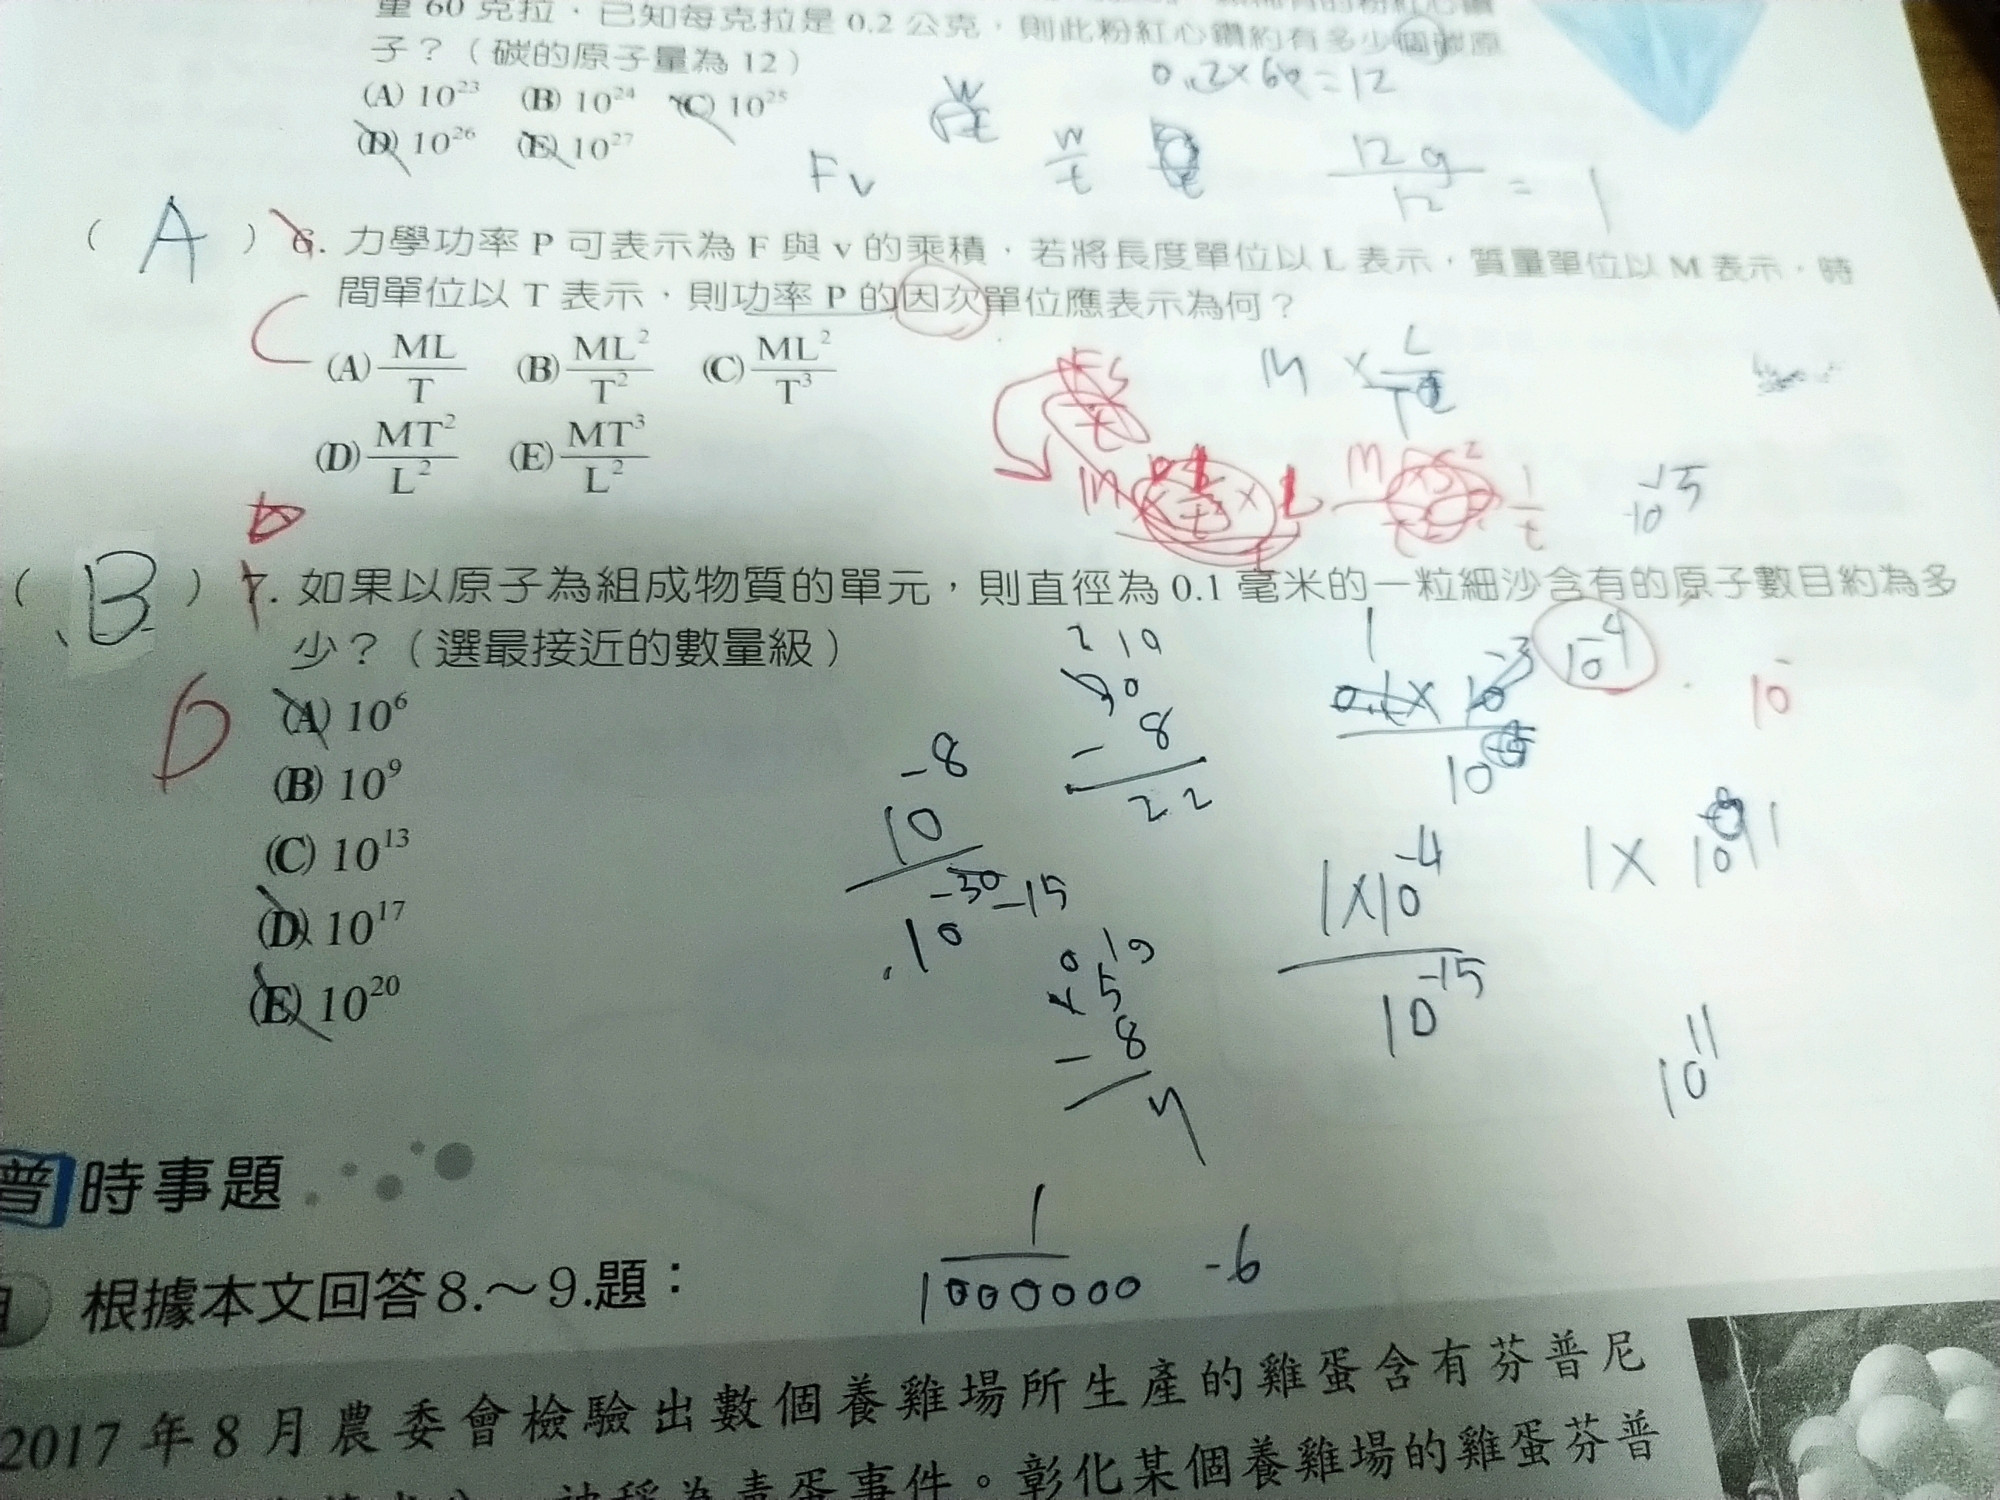 量 60 克拉，已知每克拉是 0.2 公克，則此粉紅心鑽約有多少個碳原
子？（碳的原子量為 12）
0.2×60=12
(A) 10²³ (B) 10²⁴ (C) 10²⁵
(D) 10²⁶ (E) 10²⁷
W
t
Fv
12g
12
= 1
( A ) 6. 力學功率 P 可表示為 F 與 v 的乘積，若將長度單位以 L 表示，質量單位以 M 表示，時
間單位以 T 表示，則功率 P 的因次單位應表示為何？
C
(A) ML/T (B) ML²/T² (C) ML²/T³
(D) MT²/L² (E) MT³/L²
10⁻¹⁵
( B ) 7. 如果以原子為組成物質的單元，則直徑為 0.1 毫米的一粒細沙含有的原子數目約為多
少？（選最接近的數量級）
10⁻⁴
D
(A) 10⁶
(B) 10⁹
(C) 10¹³
(D) 10¹⁷
(E) 10²⁰
- 8
22
10⁻⁸
10⁻³⁰ -15
1×10⁻⁴
10⁻¹⁵
10¹¹
- 8
7
普 時事題
1
1000000
-6
根據本文回答8.～9.題：
2017 年 8 月農委會檢驗出數個養雞場所生產的雞蛋含有芬普尼
被稱為毒蛋事件。彰化某個養雞場的雞蛋芬普